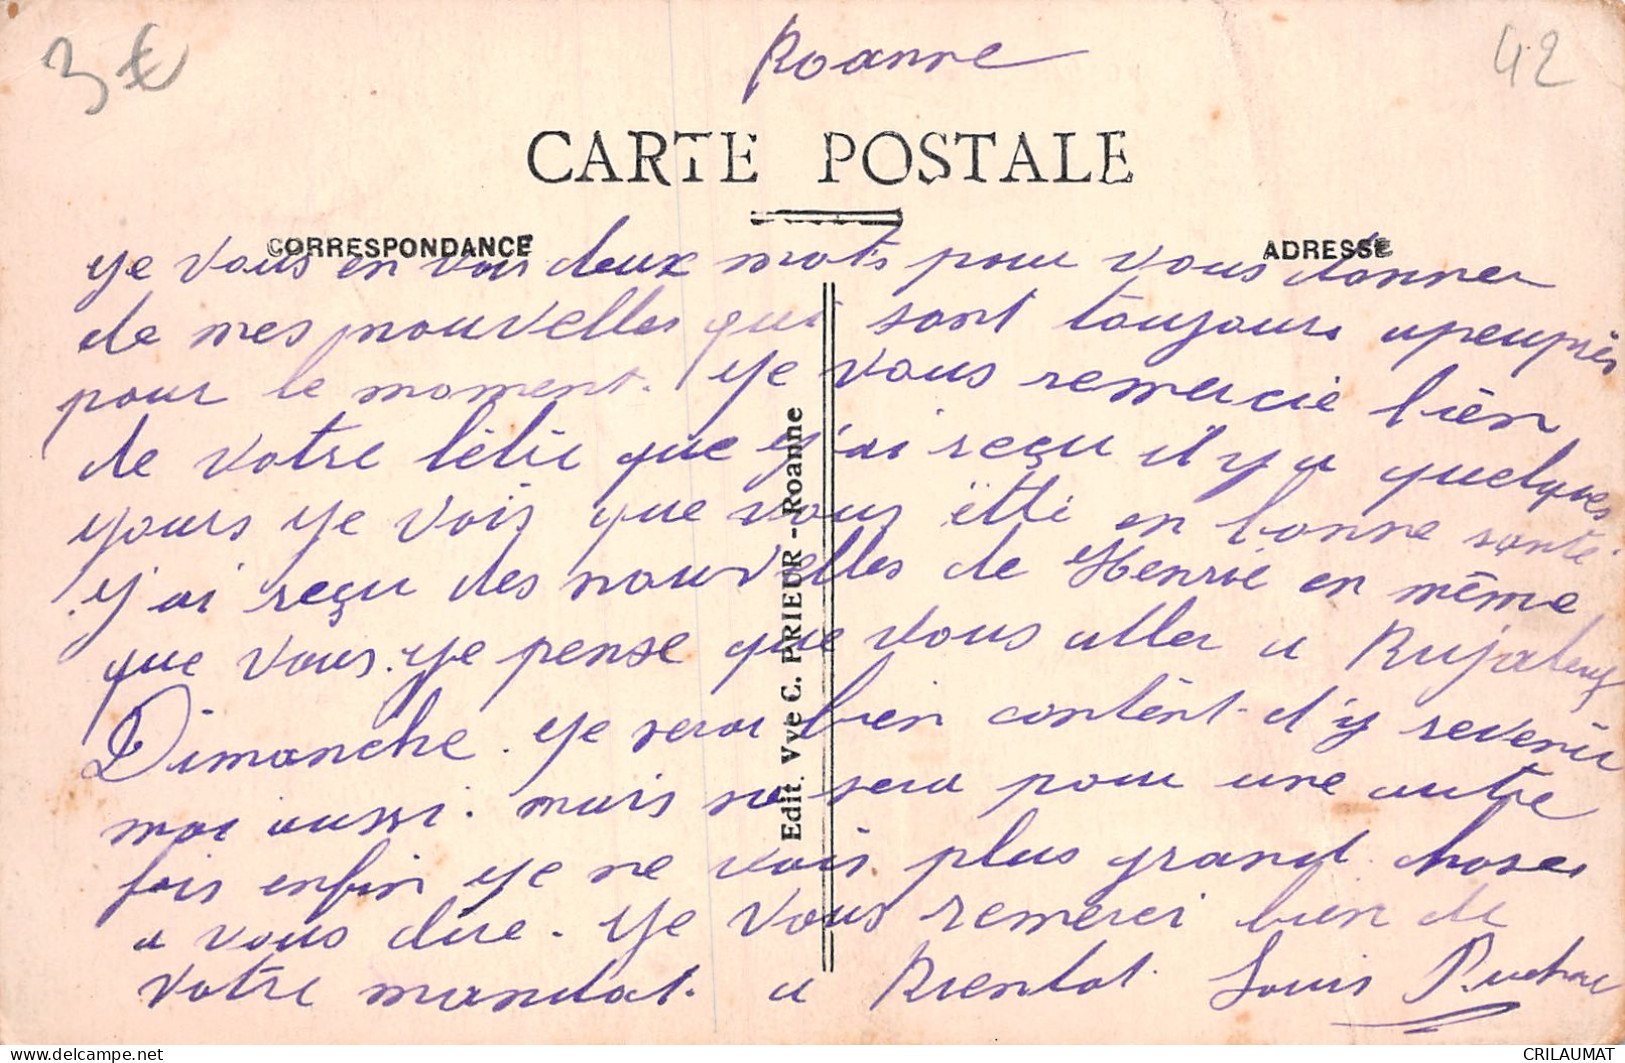 3 €
Roanne
42
CARTE POSTALE
CORRESPONDANCE
ADRESSE
Je vous en vois deux mots pour vous donner
de mes nouvelles qui sont toujours apeuprès
pour le moment. Je vous remercie bien
de votre lètre que j'ai reçu il y a quelques
jours je vois que vous ètte en bonne santé
j'ai reçu des nouvelles de Henrie en même
que vous. Je pense que vous aller a
Dimanche. Je serai bien contènt d'y revenir
moi aussi. mais se sera pour une autre
fois enfin je ne vois plus grand choses
a vous dire. Je vous remerci bien de
votre mandat. a Bientot. Louis
Edit. Vve C. PRIEUR - Roanne
https://www.delcampe.net
CRILAUMAT